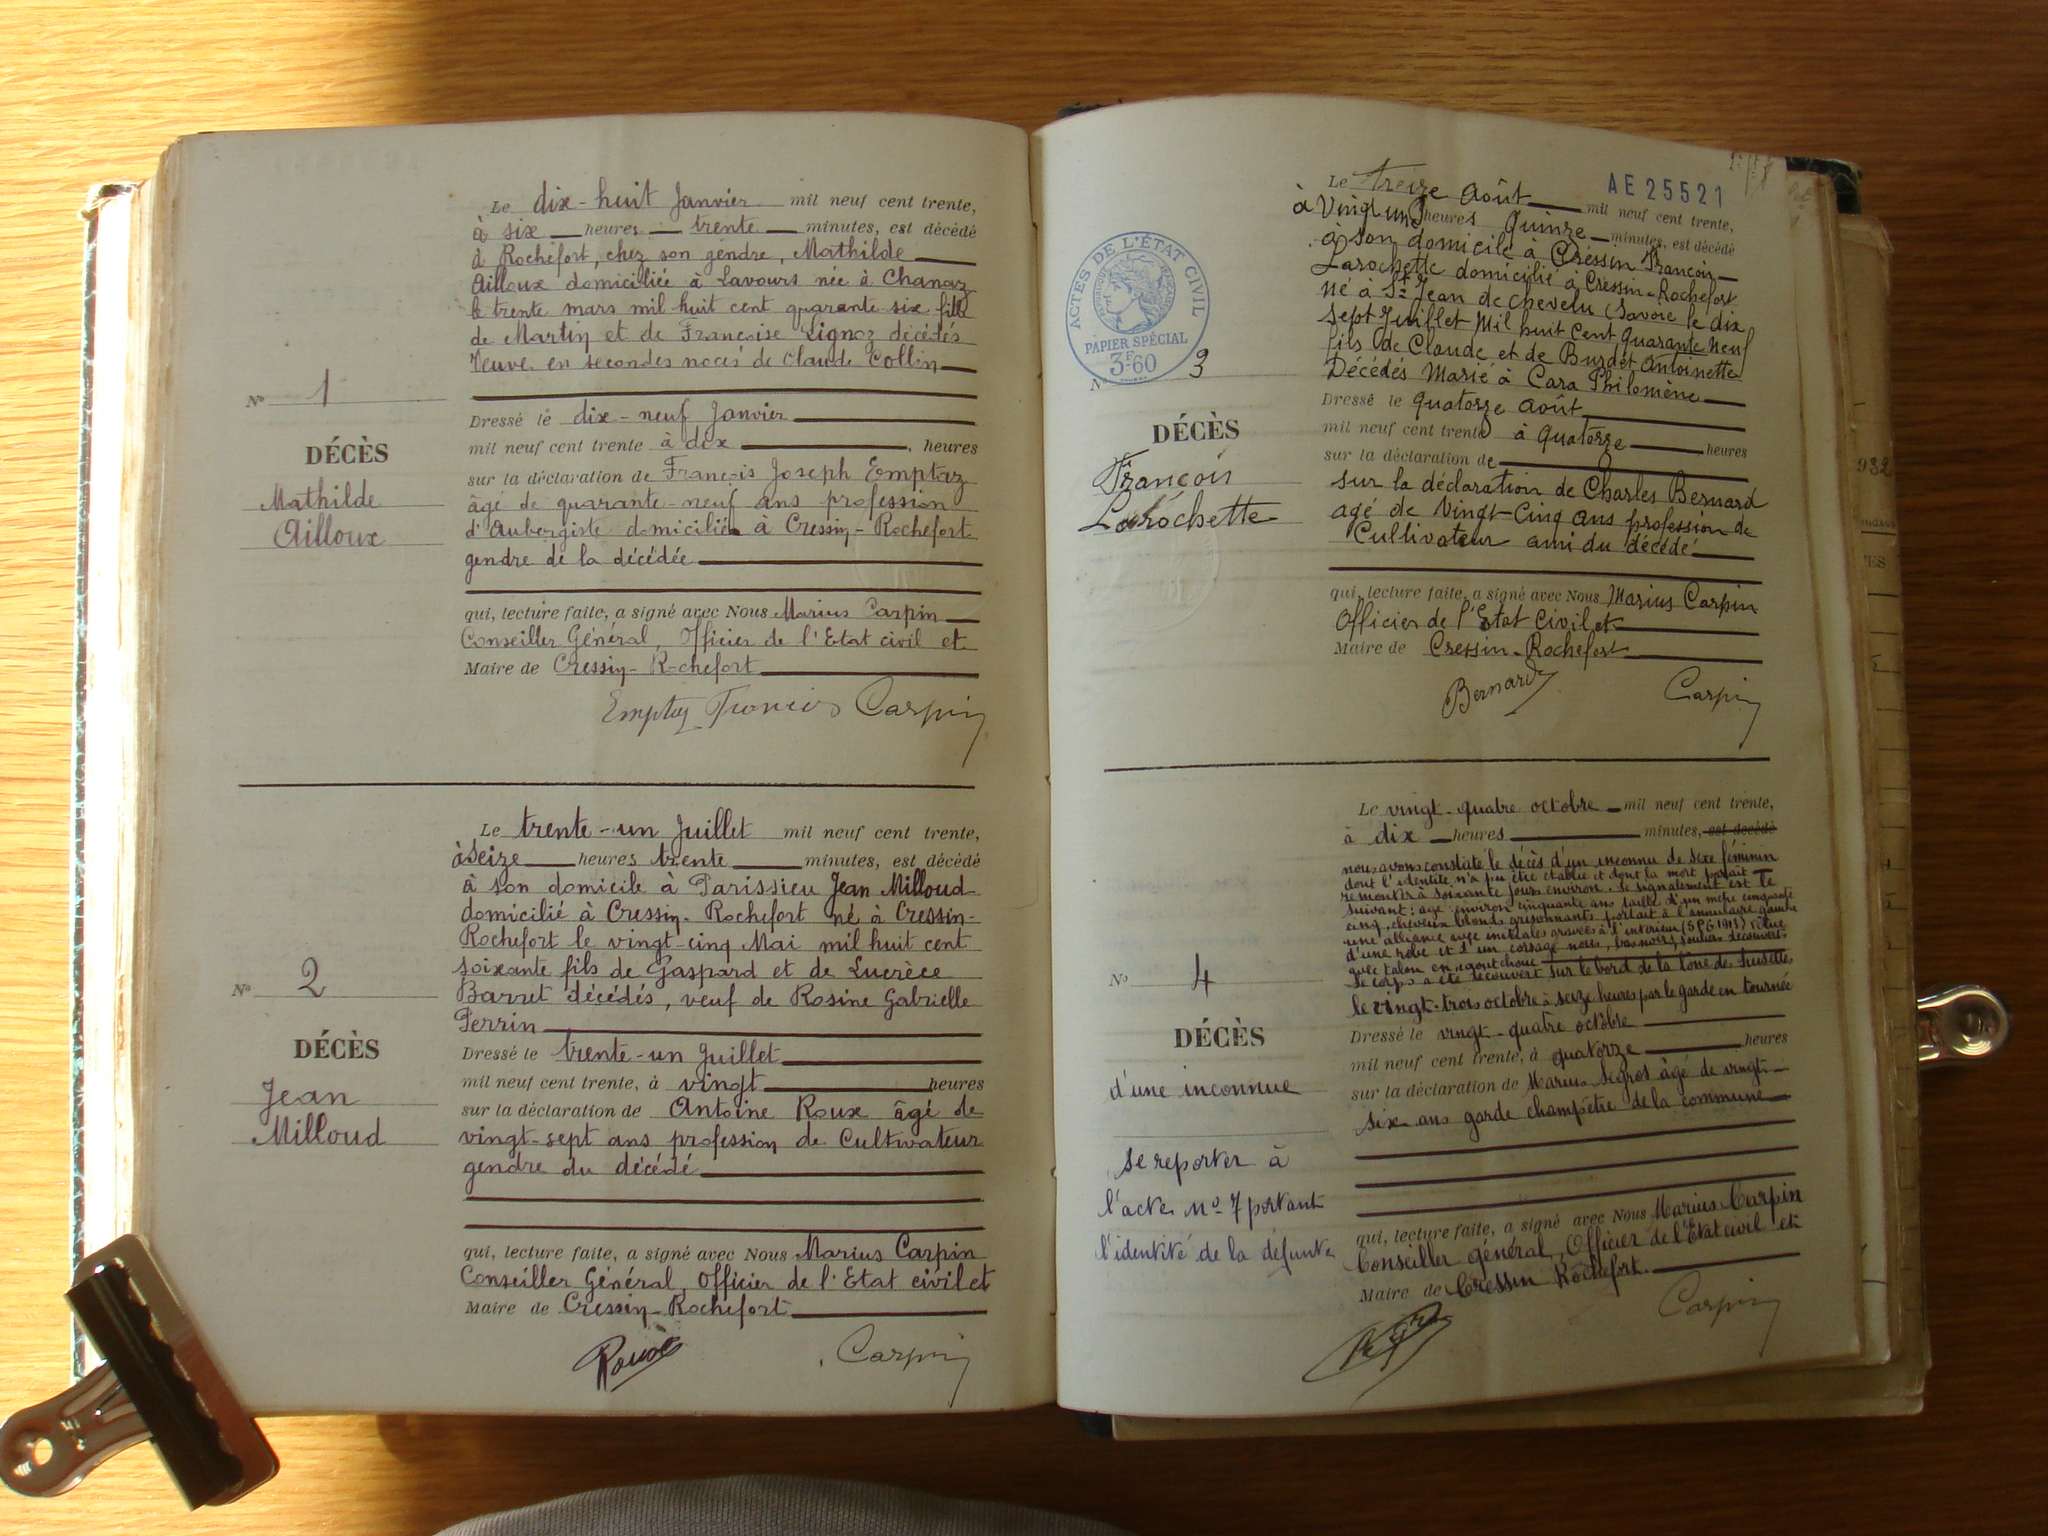 Le dix-huit Janvier mil neuf cent trente,
à six heures trente minutes, est décédé
à Rochefort, chez son gendre, Mathilde
Ailloux domiciliée à Lavours née à Chanaz
le trente mars mil huit cent quarante six fille
de Martin et de Françoise Lignoz décédés
Veuve en secondes noces de Claude Collin
Nº 1
DÉCÈS
Mathilde
Ailloux
Dressé le dix-neuf Janvier
mil neuf cent trente à dix heures
sur la déclaration de François Joseph Emptaz
âgé de quarante-neuf ans profession
d'Aubergiste domicilié à Cressin-Rochefort
gendre de la décédée
qui, lecture faite, a signé avec Nous Marius Carpin
Conseiller Général, Officier de l'Etat civil et
Maire de Cressin-Rochefort
Emptaz Francois Carpin
Le trente-un Juillet mil neuf cent trente,
à seize heures trente minutes, est décédé
à son domicile à Parissieu Jean Milloud
domicilié à Cressin-Rochefort né à Cressin-
Rochefort le vingt-cinq Mai mil huit cent
soixante fils de Gaspard et de Lucrèce
Barret décédés, veuf de Rosine Gabrielle
Perrin
Nº 2
DÉCÈS
Jean
Milloud
Dressé le trente-un Juillet
mil neuf cent trente, à vingt heures
sur la déclaration de Antoine Roux âgé de
vingt-sept ans profession de Cultivateur
gendre du décédé
qui, lecture faite, a signé avec Nous Marius Carpin
Conseiller Général, Officier de l'Etat civil et
Maire de Cressin-Rochefort
Roux Carpin
AE 25521
Le treize Août mil neuf cent trente,
à Vingt une heures Quinze minutes, est décédé
à son domicile à Cressin François
Larochette domicilié à Cressin-Rochefort
né à St Jean de Chevelu (Savoie le dix
sept Juillet Mil huit Cent Quarante Neuf
fils de Claude et de Burdet Antoinette
Décédés Marié à Cara Philomène
ACTES DE L'ÉTAT CIVIL
PAPIER SPÉCIAL
3F60
Nº 3
DÉCÈS
François
Larochette
Dressé le quatorze Août
mil neuf cent trente à quatorze heures
sur la déclaration de
sur la déclaration de Charles Bernard
agé de Vingt-Cinq ans profession de
Cultivateur ami du décédé
qui, lecture faite, a signé avec Nous Marius Carpin
Officier de l'Etat Civil et
Maire de Cressin-Rochefort
Bernard Carpin
Le vingt-quatre octobre mil neuf cent trente,
à dix heures minutes, est décédé
nous avons constaté le décès d'un inconnu de sexe féminin
dont l'identité n'a pu être établie et dont la mort parait
remonter à soixante jours environ. Le signalement est le
suivant: age environ cinquante ans taille d'un mètre cinquante
cinq, cheveux blonds grisonnants portait à l'annulaire gauche
une alliance avec initiales gravées à l'intérieur (S P G 1913) vêtue
d'une robe et d'un corsage noir, bas noirs, souliers découverts
avec talon en caoutchouc
Le corps a été découvert sur le bord de la lône des
le vingt-trois octobre à seize heures par le garde en tournée
Nº 4
DÉCÈS
d'une inconnue
se reporter à
l'acte Nº 7 portant
l'identité de la défunte
Dressé le vingt-quatre octobre
mil neuf cent trente, à quatorze heures
sur la déclaration de Marius Segros âgé de vingt-
six ans garde champêtre de la commune
qui, lecture faite, a signé avec Nous Marius Carpin
Conseiller général, Officier de l'Etat civil et
Maire de Cressin Rochefort.
Carpin
932